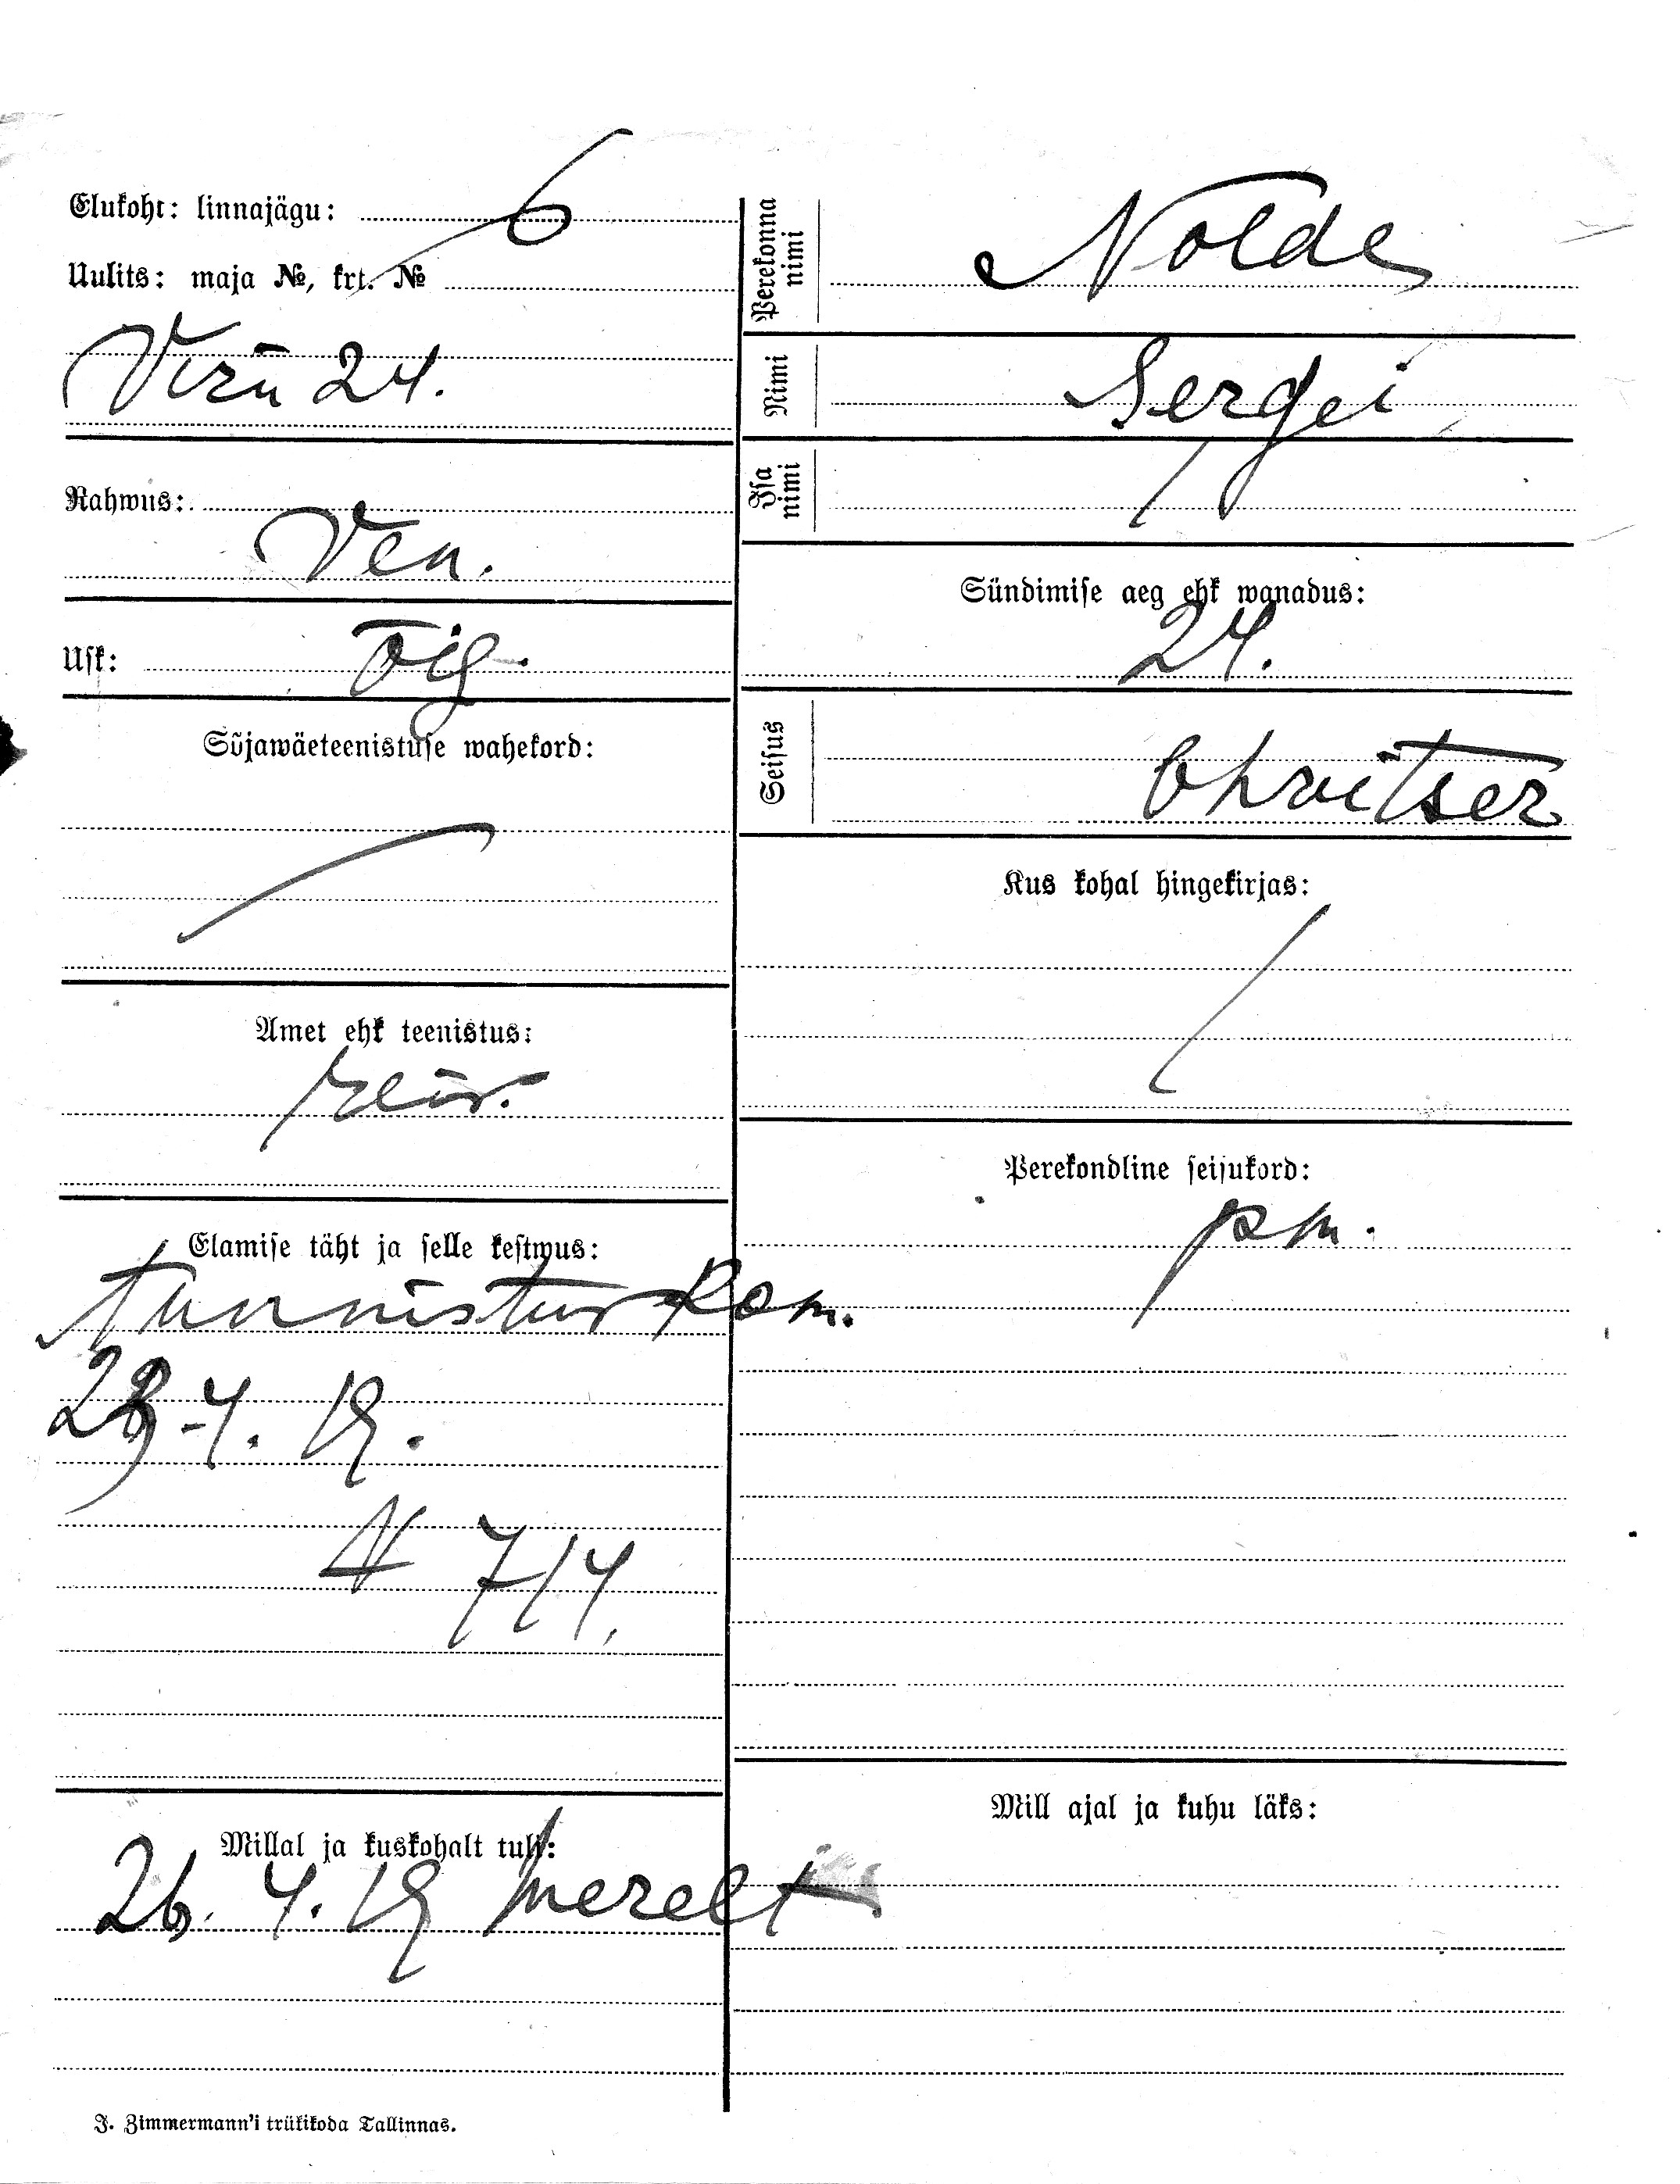 Elukoht: linnajägu: 6
Uulits: maja №, krt. №
Viru 24.
Rahwus:
Ven.
Usk: õig.
Sõjawäeteenistuse wahekord:
Amet ehk teenistus:
Elamise täht ja selle kestwus:
tunnistus Kom.
28-4. 19.
N 714.
Millal ja kuskohalt tuli:
26. 4. 19 merelt
J. Zimmermann'i trükikoda Tallinnas.
Perekonna nimi Nolde
Nimi Sergei
Isa nimi
Sündimise aeg ehk wanadus:
24.
Seisus
Ohvitser
Kus kohal hingekirjas:
Perekondline seisukord:
pm.
Mill ajal ja kuhu läks: